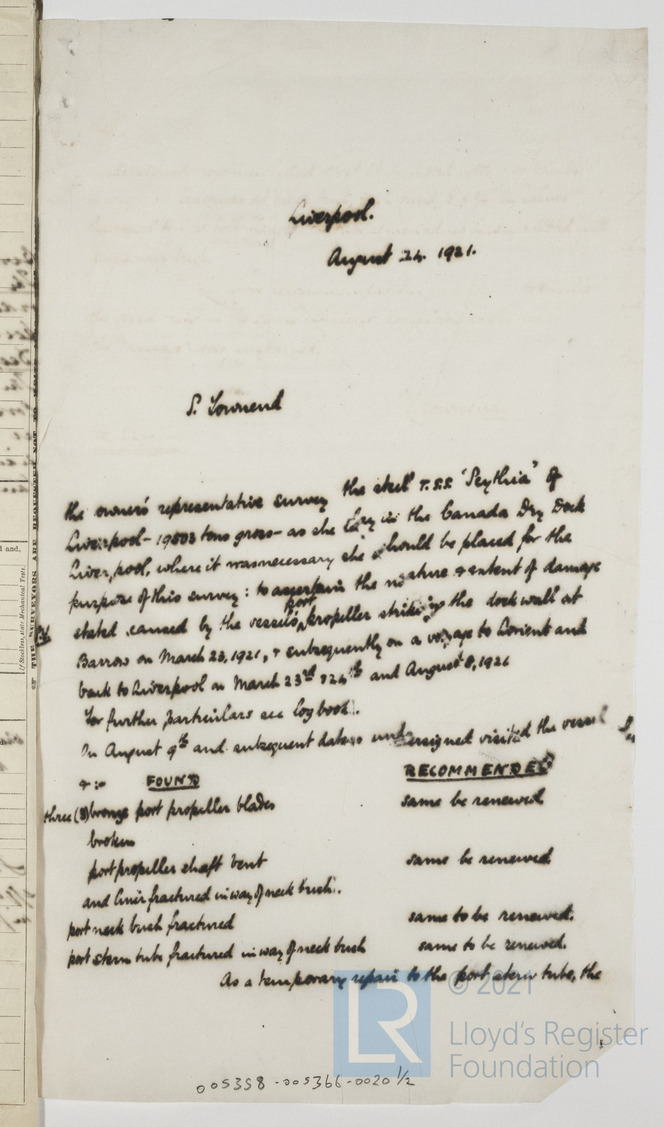 Liverpool.
August 24. 1921.
S. Townend
the owner's representative survey the steel T.S.S "Scythia" of
Liverpool - 19503 tons gross - as she lay in the Canada Dry Dock
Liverpool, where it was necessary she should be placed for the
purpose of this survey: to ascertain the nature & extent of damage
stated caused by the vessel's port propeller striking the dock wall at
Barrow on March 23, 1921, & subsequently on a voyage to Lorient and
back to Liverpool on March 23rd & 24th and August 8, 1921
For further particulars see log book.
On August 9th and subsequent dates undersigned visited the vessel
& :- FOUND RECOMMENDED
three (3) bronze port propeller blades same be renewed
broken
port propeller shaft bent same be renewed
and liner fractured in way of neck bush.
port neck bush fractured same to be renewed.
port stern tube fractured in way of neck bush same to be renewed.
As a temporary repair to the port stern tube, the
© 2021
LR Lloyd's Register
Foundation
005358-005366-0020 1/2